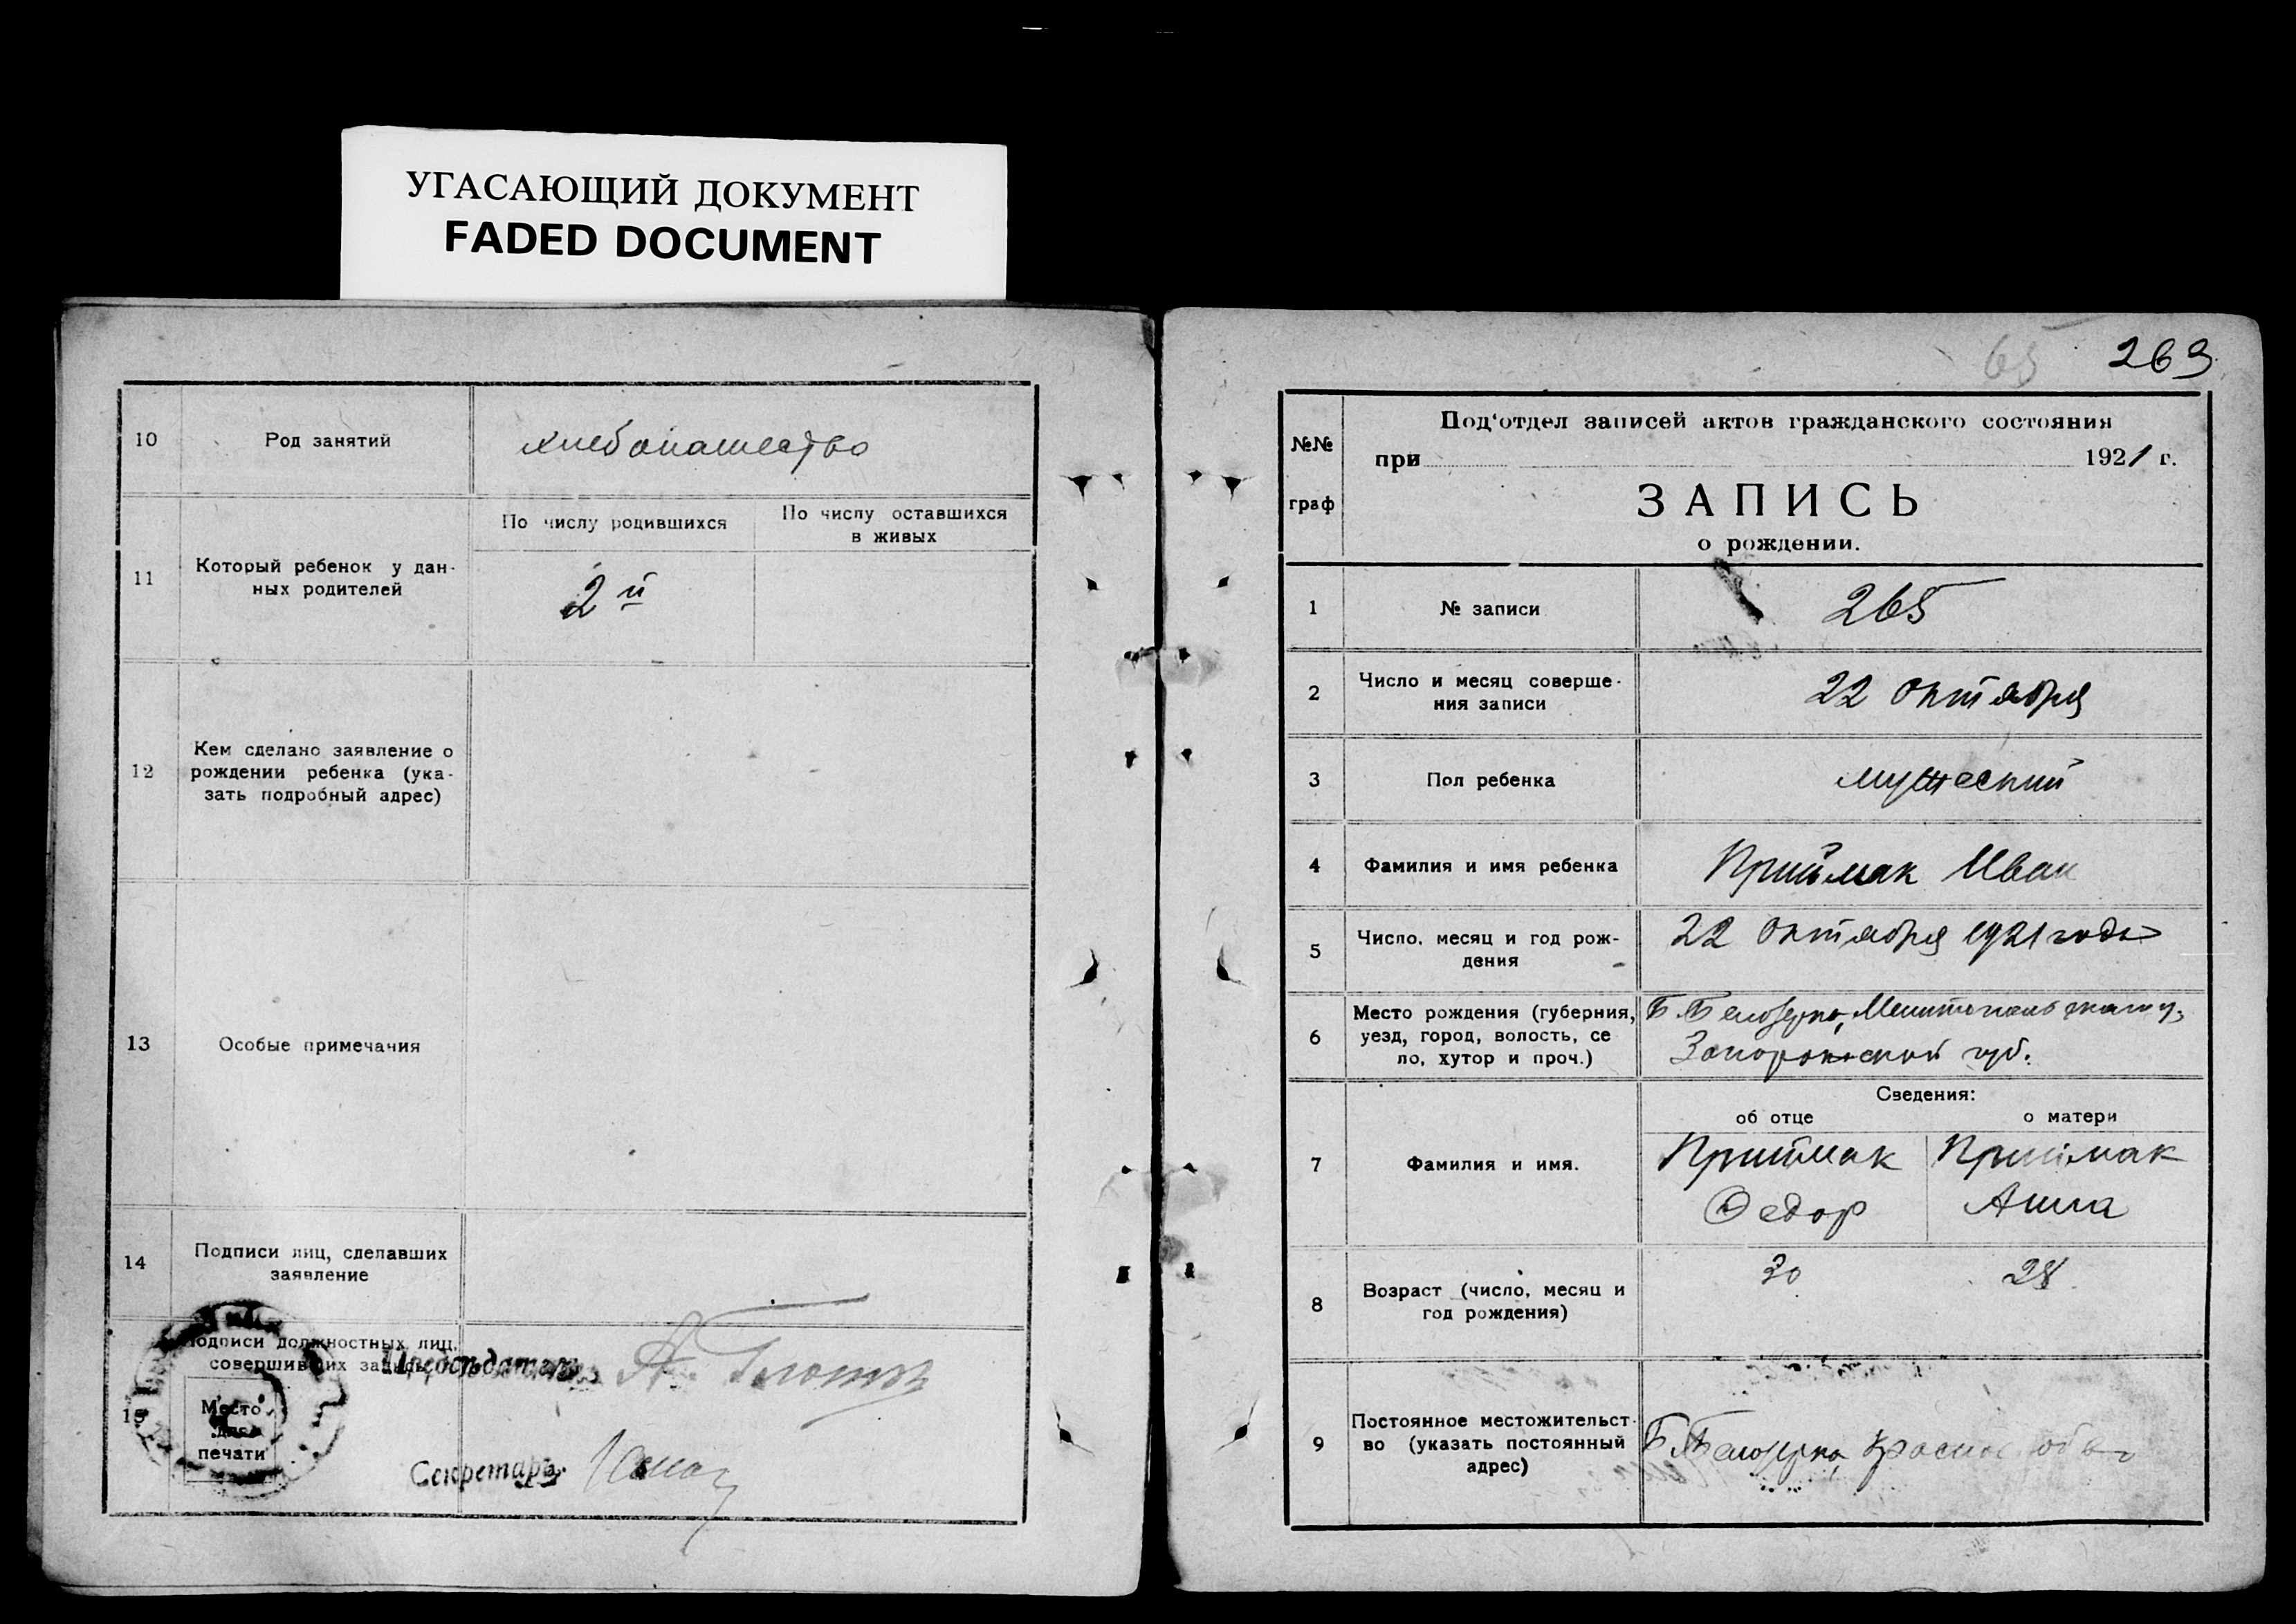 УГАСАЮЩИЙ ДОКУМЕНТ
FADED DOCUMENT
10
Род занятий
хлебопашество
11
Который ребенок у дан-
ных родителей
По числу родившихся
По числу оставшихся
в живых
2й
12
Кем сделано заявление о
рождении ребенка (ука-
зать подробный адрес)
13
Особые примечания
14
Подписи лиц, сделавших
заявление
15
Подписи должностных лиц,
совершивших запись
Место
для
печати
Председатель
Секретарь
65 269
№№
граф
Под'отдел записей актов гражданского состояния
при 1921 г.
ЗАПИСЬ
о рождении.
1
№ записи
265
2
Число и месяц соверше-
ния записи
22 октября
3
Пол ребенка
мужеский
4
Фамилия и имя ребенка
Приймак Иван
5
Число, месяц и год рож-
дения
22 октября 1921 года
6
Место рождения (губерния,
уезд, город, волость, се
ло, хутор и проч.)
Б. Белозерка, Мелитопольского у,
Запорожской губ.
Сведения:
об отце
о матери
7
Фамилия и имя.
Приймак
Федор
Приймак
Анна
8
Возраст (число, месяц и
год рождения)
30
28
9
Постоянное местожительст-
во (указать постоянный
адрес)
Б. Белозерка, Красное об-во